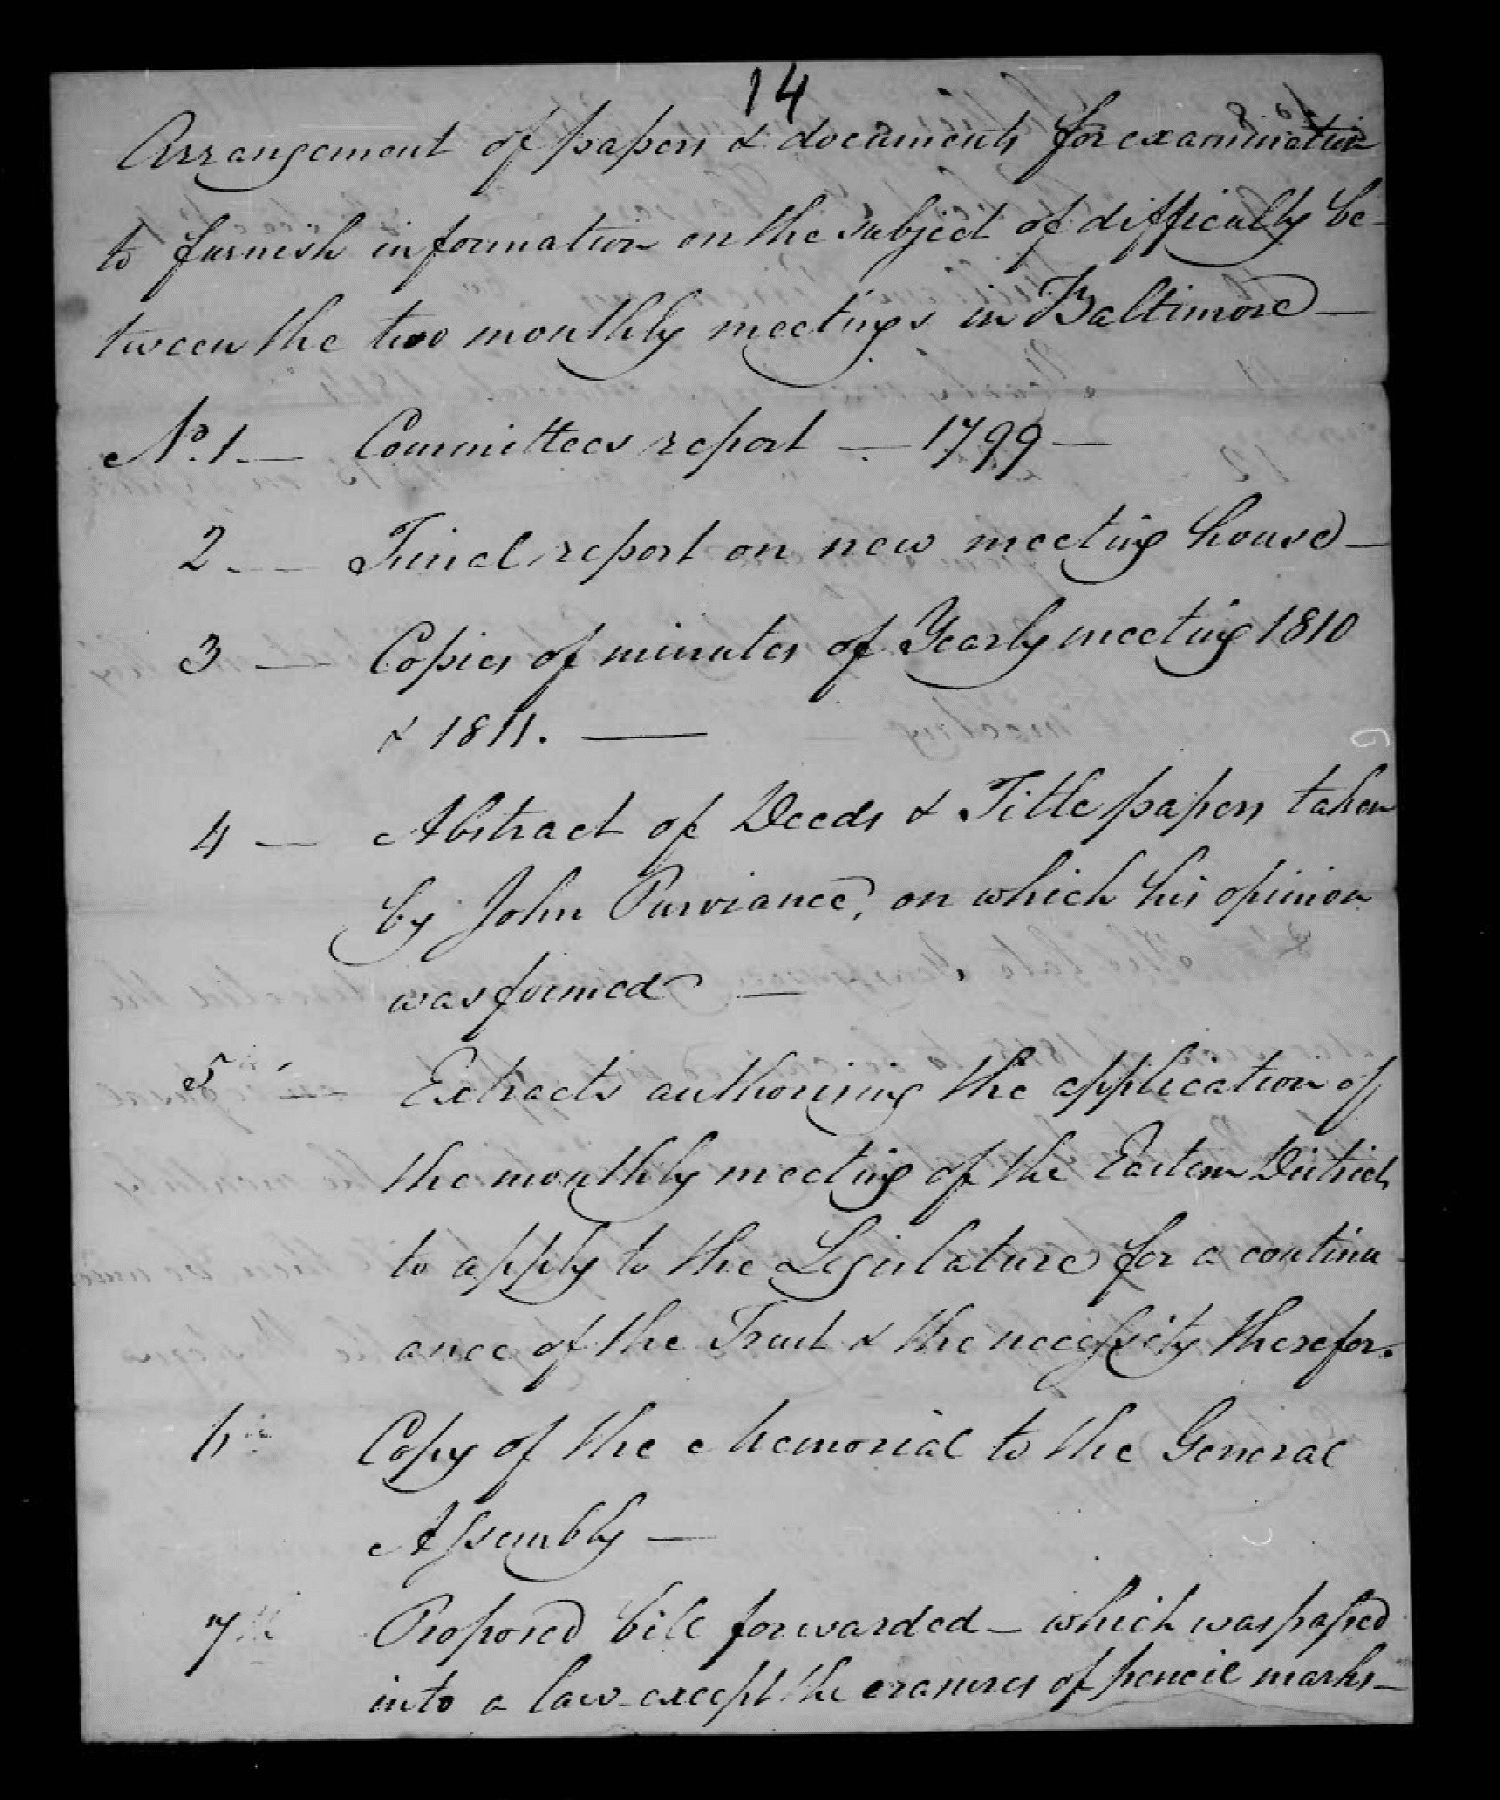 14
Arrangement of papers & documents for examination
to furnish information on the subject of difficulty be-
tween the two monthly meetings in Baltimore —
No. 1 — Committees report — 1799 —
2 — Final report on new meeting house —
3 — Copies of minutes of Yearly meeting 1810
& 1811. —
4 — Abstract of Deeds & Title papers taken
by John Purviance, on which his opinion
was formed —
5 — Extracts authorising the application of
the monthly meeting of the Eastern District
to apply to the Legislature for a continu-
ance of the Trust & the necessity therefor.
6 Copy of the Memorial to the General
Assembly —
7th Proposed bill forwarded — which was passed
into a law except the erasures of pencil marks —